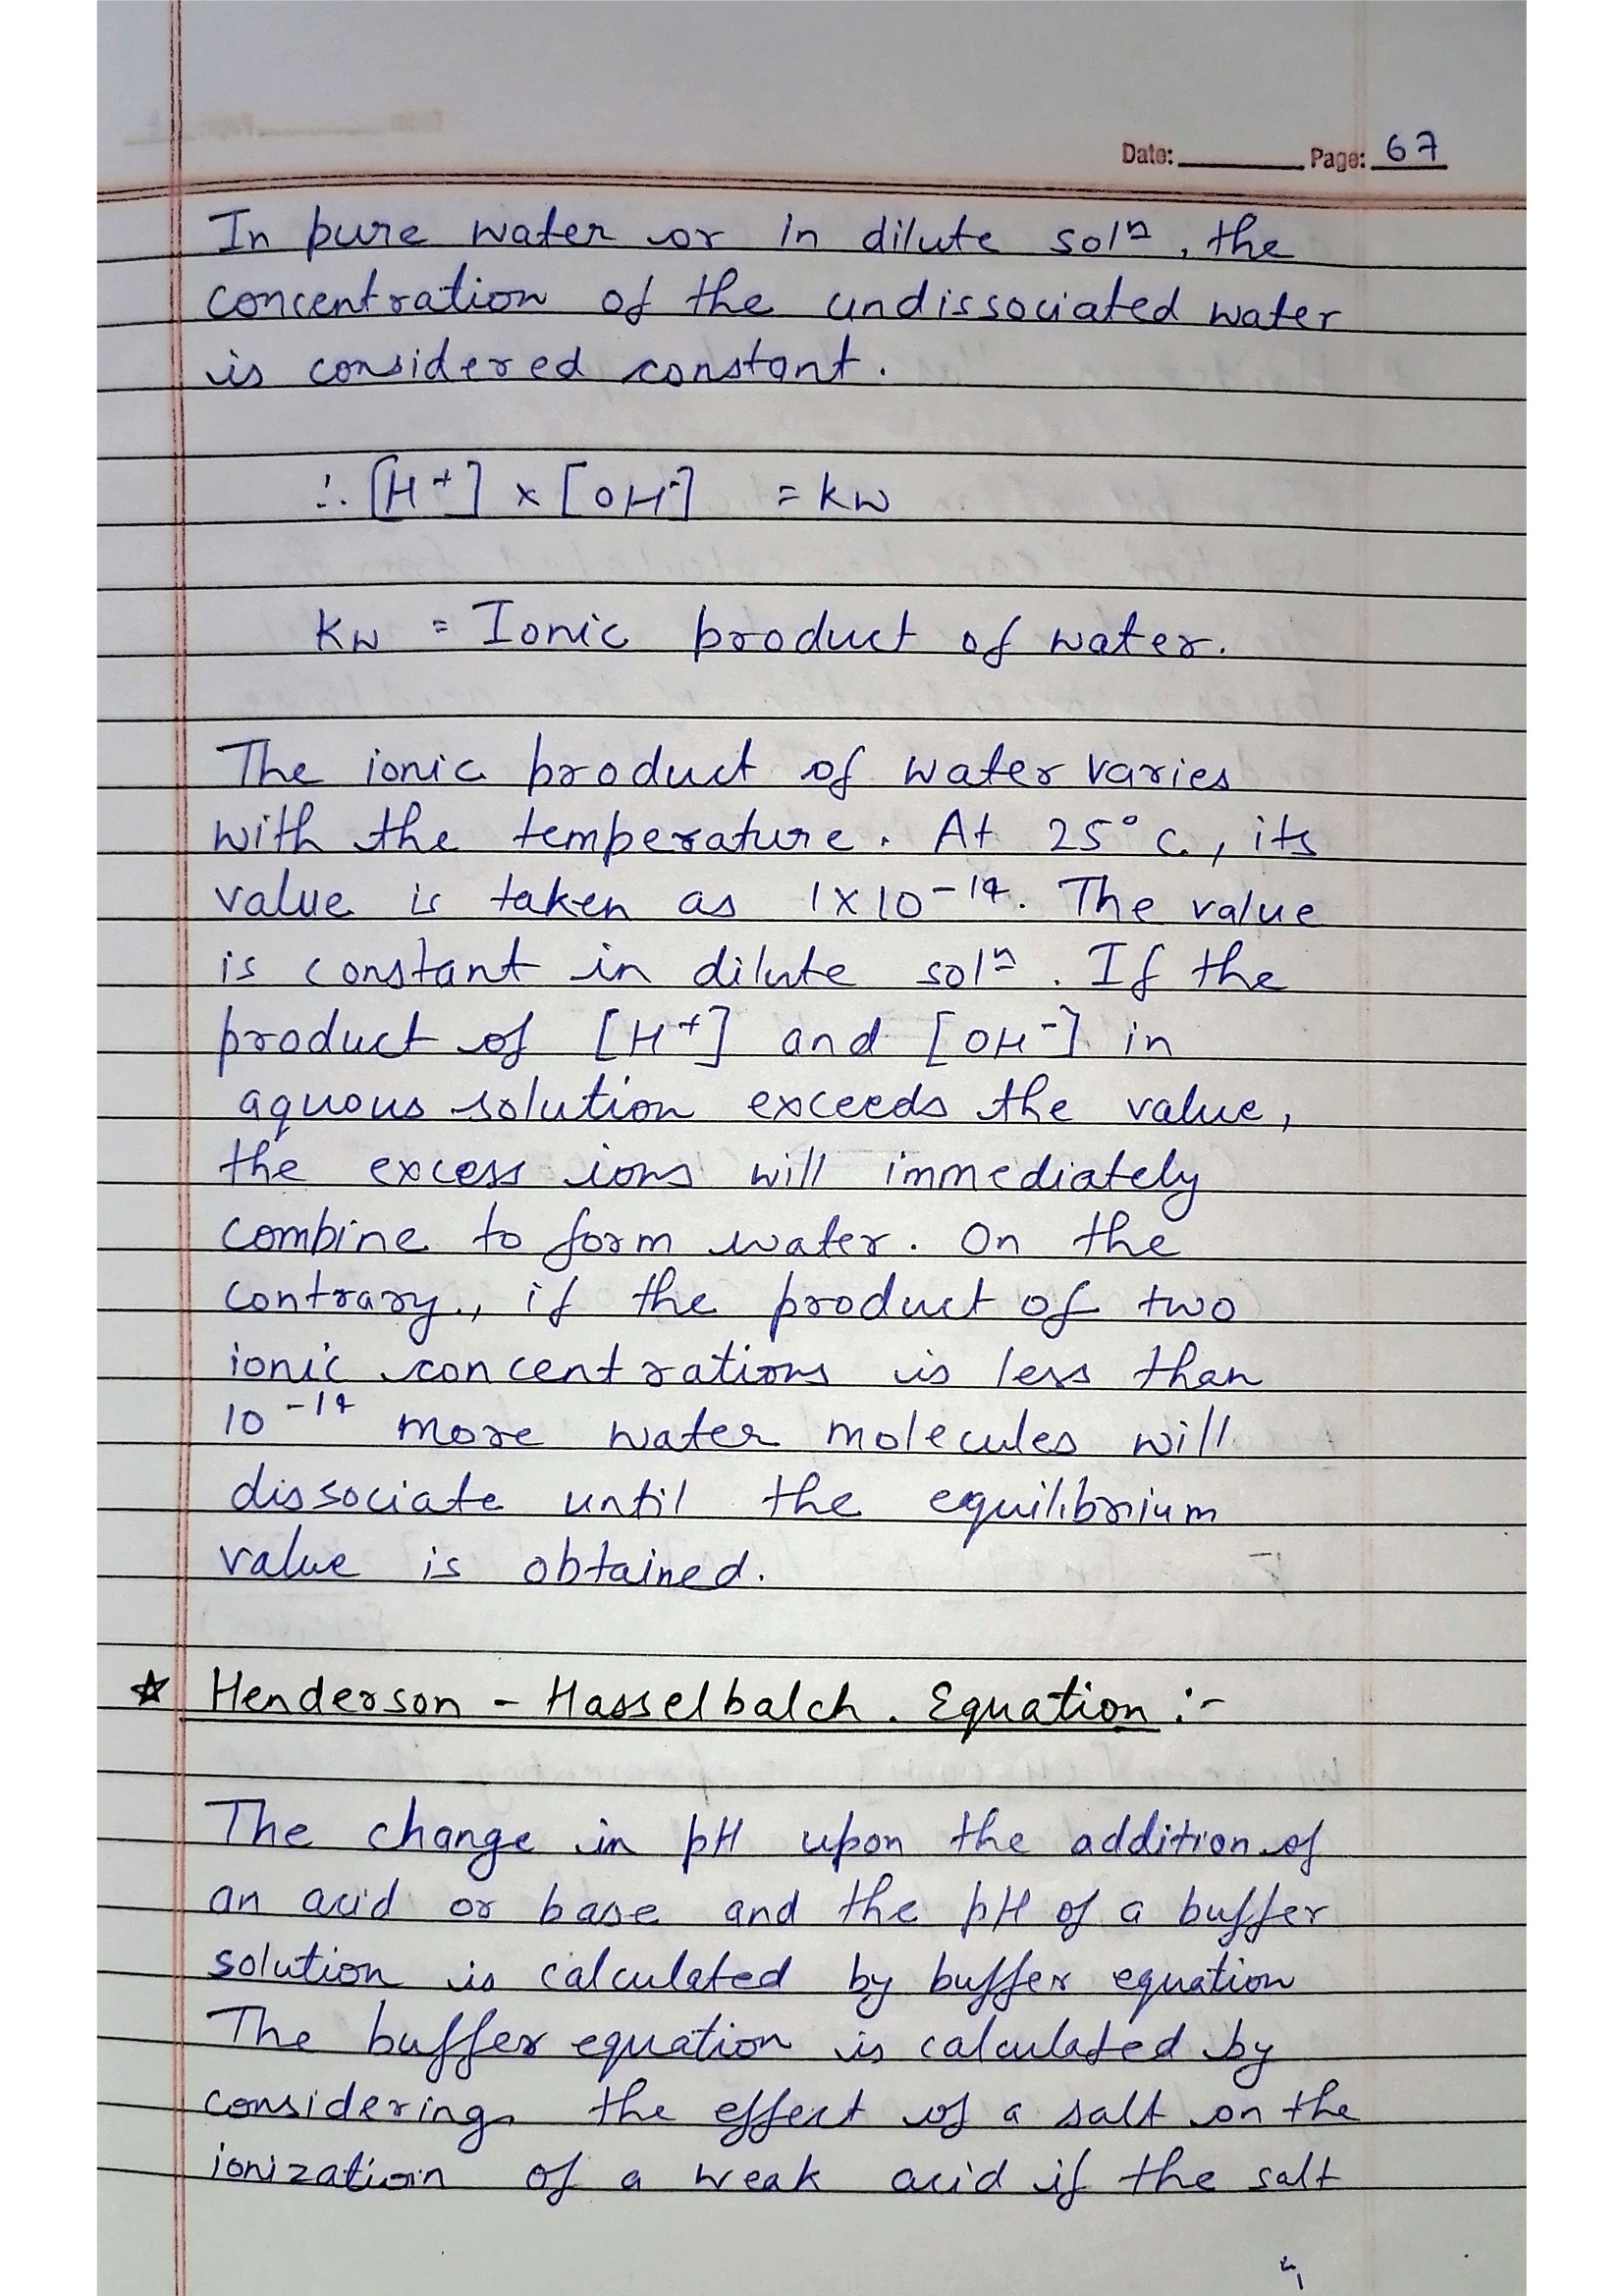 Date: Page: 67
In pure water or in dilute solⁿ, the
concentration of the undissociated water
is considered constant.
∴ [H⁺] × [OH⁻] = kw
kw = Ionic product of water.
The ionic product of water varies
with the temperature. At 25°C, its
value is taken as 1×10⁻¹⁴. The value
is constant in dilute solⁿ. If the
product of [H⁺] and [OH⁻] in
aquous solution exceeds the value,
the excess ions will immediately
combine to form water. On the
contrary, if the product of two
ionic concentrations is less than
10⁻¹⁴ more water molecules will
dissociate until the equilibrium
value is obtained.
☆ Henderson - Hasselbalch. Equation :-
The change in pH upon the addition of
an acid or base and the pH of a buffer
solution is calculated by buffer equation
The buffer equation is calculated by
considering the effect of a salt on the
ionization of a weak acid if the salt